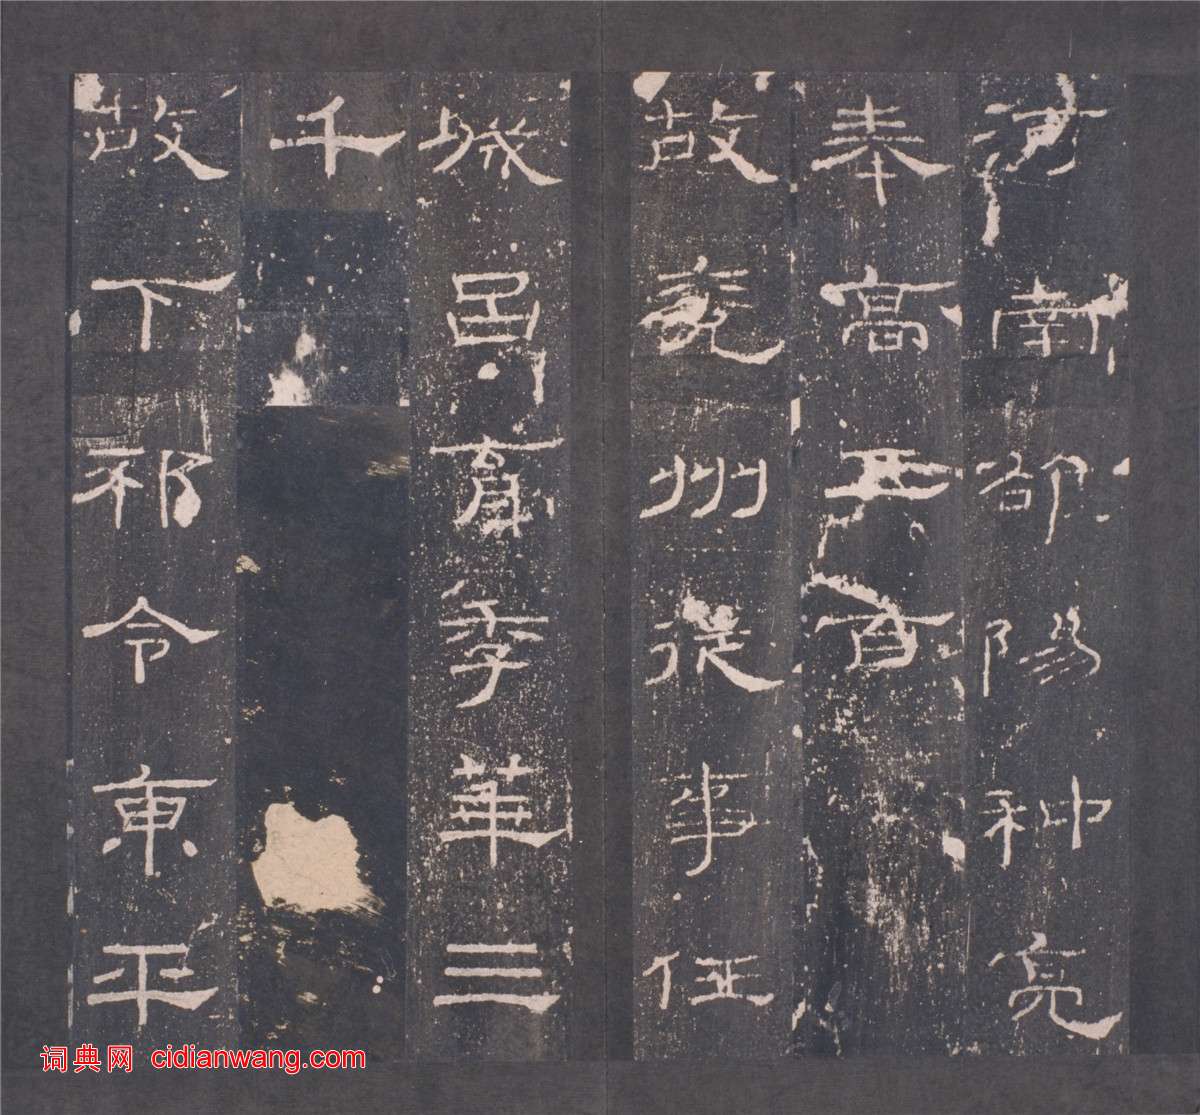 河南雒陽种亮
奉高五百
故兗州從事任
城呂育季華三
千
故下邳令東平
词典网 cidianwang.com